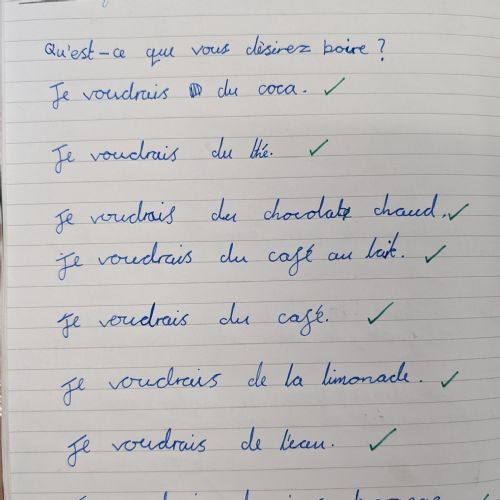 Qu'est-ce que vous désirez boire ?
Je voudrais du coca.
Je voudrais du thé.
Je voudrais du chocolat chaud.
Je voudrais du café au lait.
Je voudrais du café.
Je voudrais de la limonade.
Je voudrais de l'eau.